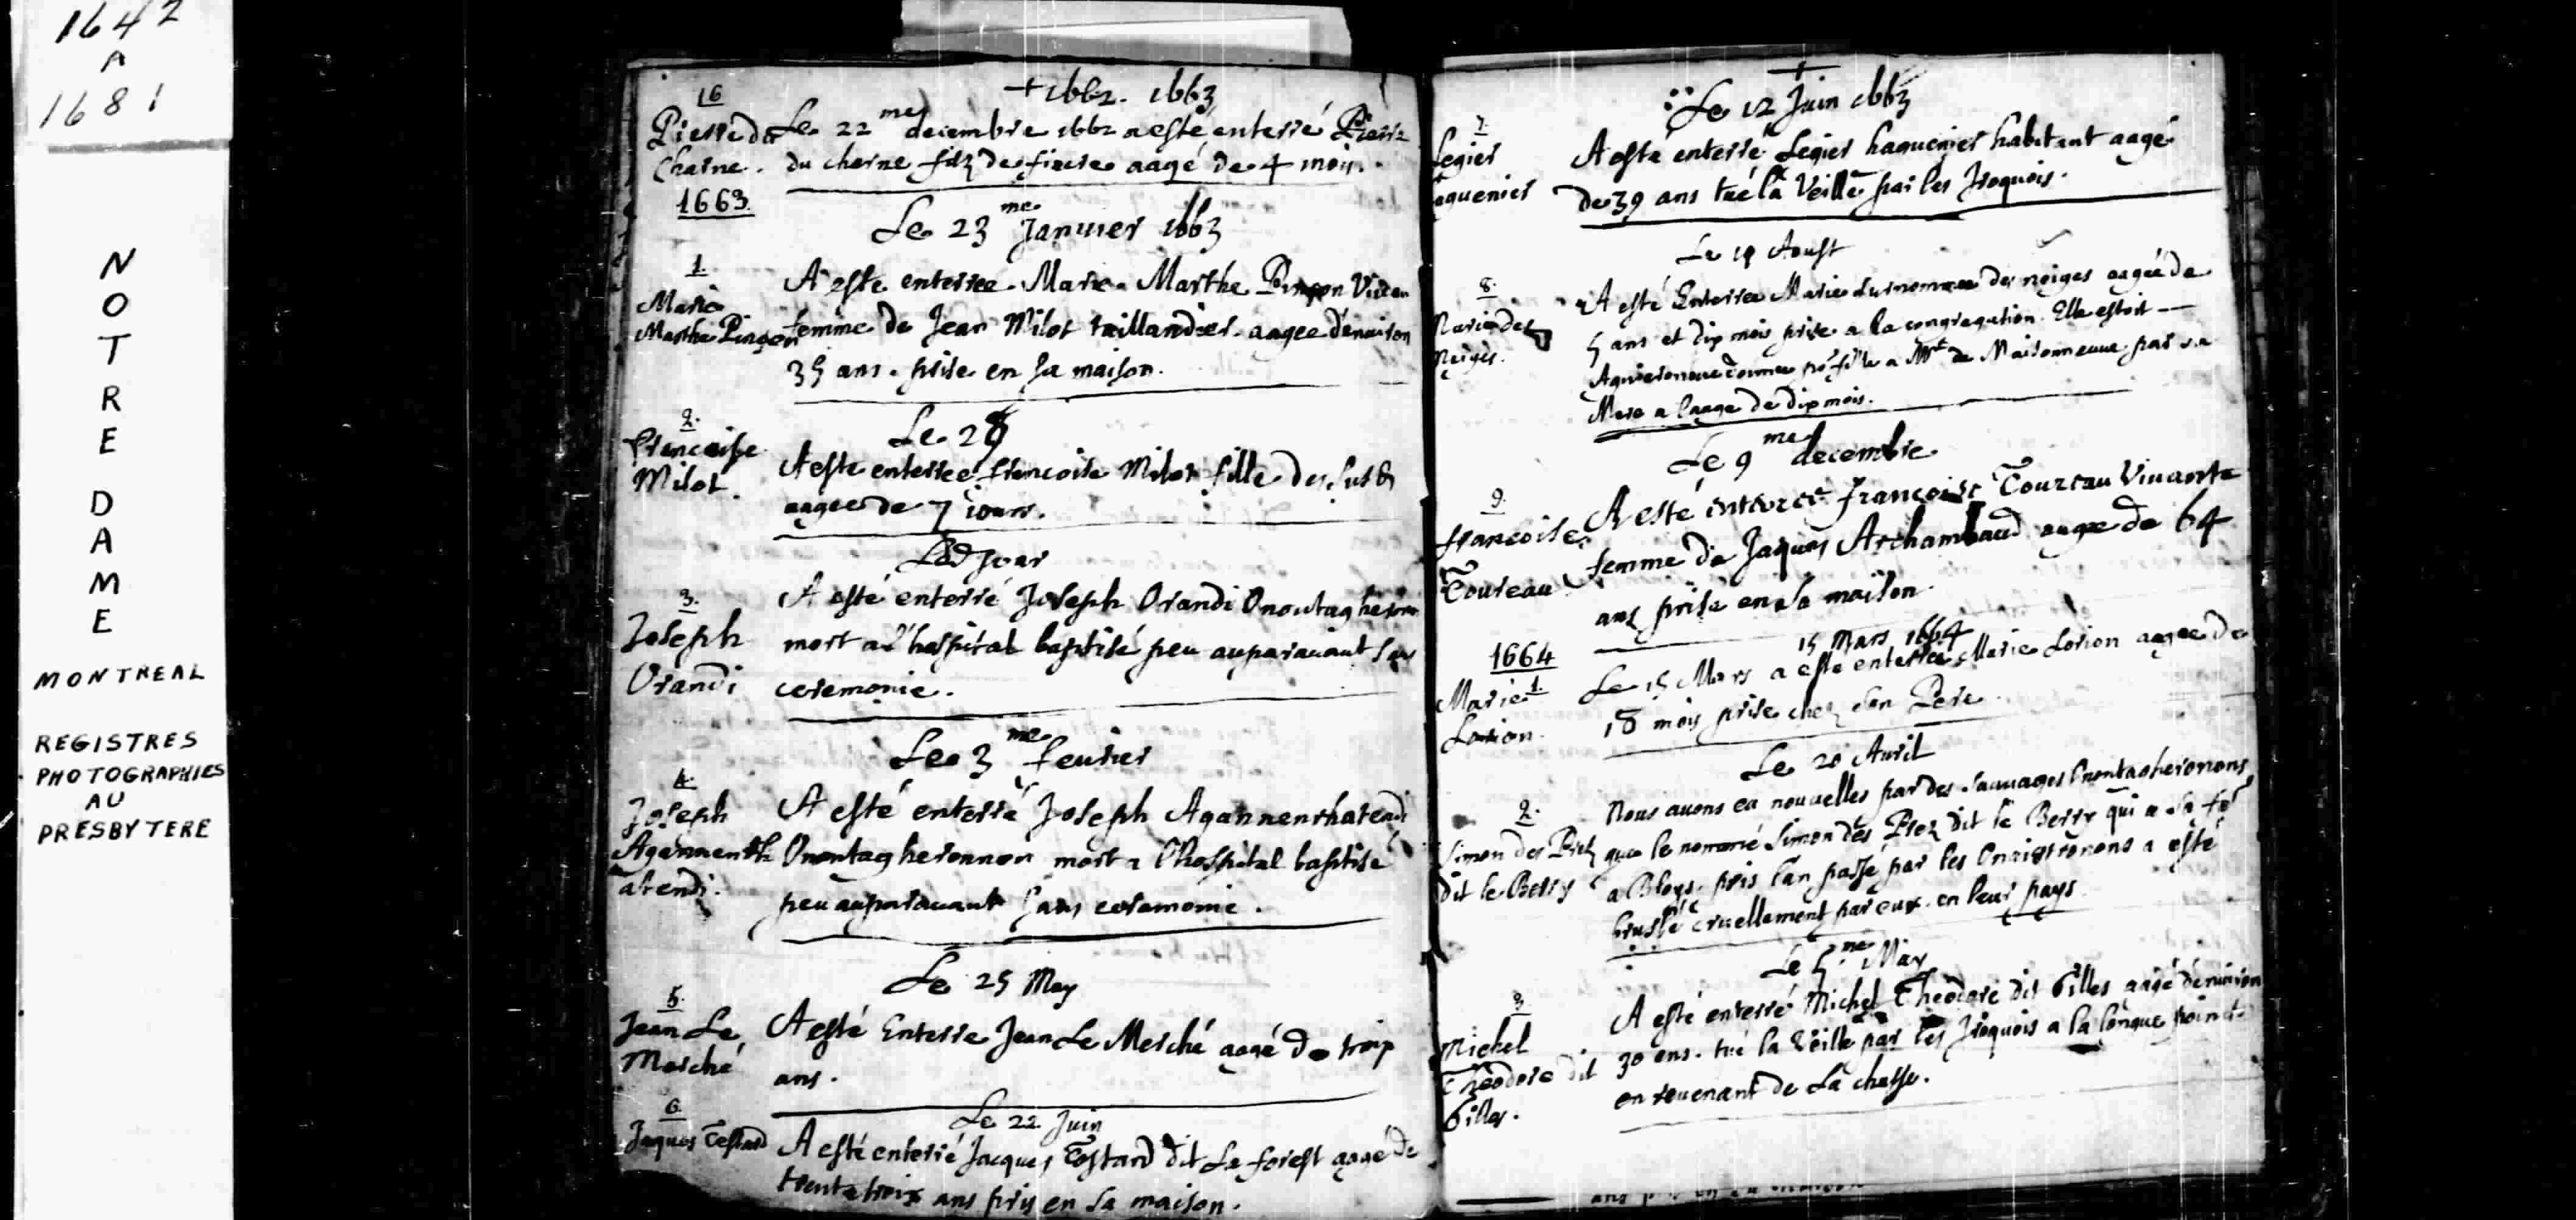 1642
A
1681
NOTRE
DAME
MONTREAL
REGISTRES
PHOTOGRAPHIES
AU
PRESBYTERE
+ 1662. 1663
16
Pierre du
Charne.
Le 22me decembre 1662 a esté enterré Pierre
du charne filz de fiacre aagé de 4 mois.
1663.
Le 23me Januier 1663
1.
Marie
Marthe Pinson
A este enterree Marie Marthe Pinson
femme de Jean Milot taillandier aagee denuiron
35 ans. prise en sa maison.
Le 28
2.
francoise
Milot.
A este enterree francoise Milot fille du susd
aagee de 7 iours.
Led Jour
3.
Joseph
Orandi
A esté enterré Joseph Orandi
mort a l'hospital baptisé peu auparauant sans
ceremonie.
Le 3me feurier
4.
Joseph
Agannenrh
atendi.
A esté enterré Joseph Agannenrhatendi
Onontagheronnon mort a l'hospital baptisé
peu auparauant sans ceremonie.
Le 25 May
5.
Jean Le
Merché
A esté Enterre Jean Le Merché aagé de trois
ans.
Le 22 Juin
6.
Jaques Testard
A esté enterré Jacques Testard dit La forest aagé de
trente trois ans pris en sa maison.
+
Le 12 Juin 1663
7.
Legier
aguenier
A esté enterré Legier haguenier habitant aagé
de 39 ans tué la Veille par les Iroquois.
Le 19 Aoust
8.
Marie des
Neiges.
A esté Enterree Marie surnommee des neiges aagée de
5 ans et dix mois prise a la congregation. Elle estoit
donnee po fille a Mr de Maisonneuue par sa
Mere a l'aage de dix mois.
Le 9me decembre
9.
francoise
Toureau
A esté enterree françoise Toureau Viuante
femme de Jaques Archambaud aagee de 64
ans prise en sa maison.
15 Mars 1664
1664
1.
Marie
Lorion.
Le 15 Mars a este enterree Marie Lorion aagee de
18 mois prise chez son Pere
Le 20 Auril
2.
Simon des Prez
dit le Berry
Nous auons eu nouuelles par des sauuages Onontagheronons
que le nommé Simon des Prez dit le Berry qui a sa fe
a Bloys. pris l'an passé par les a esté
bruslé cruellement par eux en leur pays.
Le 5me May
3.
Michel
Theodore dit
Gilles.
A esté enterré Michel Theodore dit Gilles aagé denuiron
30 ans. tué la Veille par les Iroquois a la longue pointe
en reuenant de la chasse.